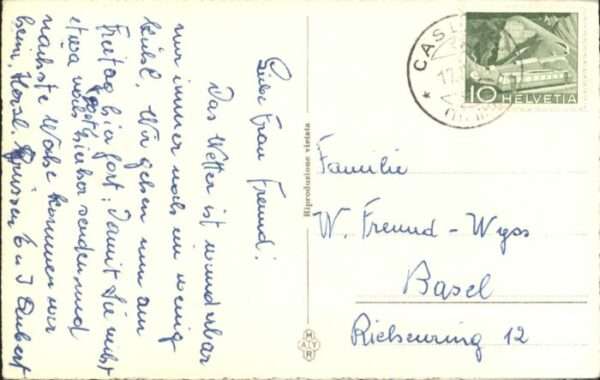 Liebe Frau Freund!
Das Wetter ist wunderbar
nur immer noch ein wenig
kühl. Wir gehen nun am
Freitag hier fort; damit Sie nicht
etwa noch Post hierher senden, und
nächste Woche kommen wir
heim. Herzl. Grüssen E. u. J.
Riproduzione vietata
MAYR
CASL
17
10 HELVETIA
Familie
W. Freund-Wyss
Basel
Riehenring 12